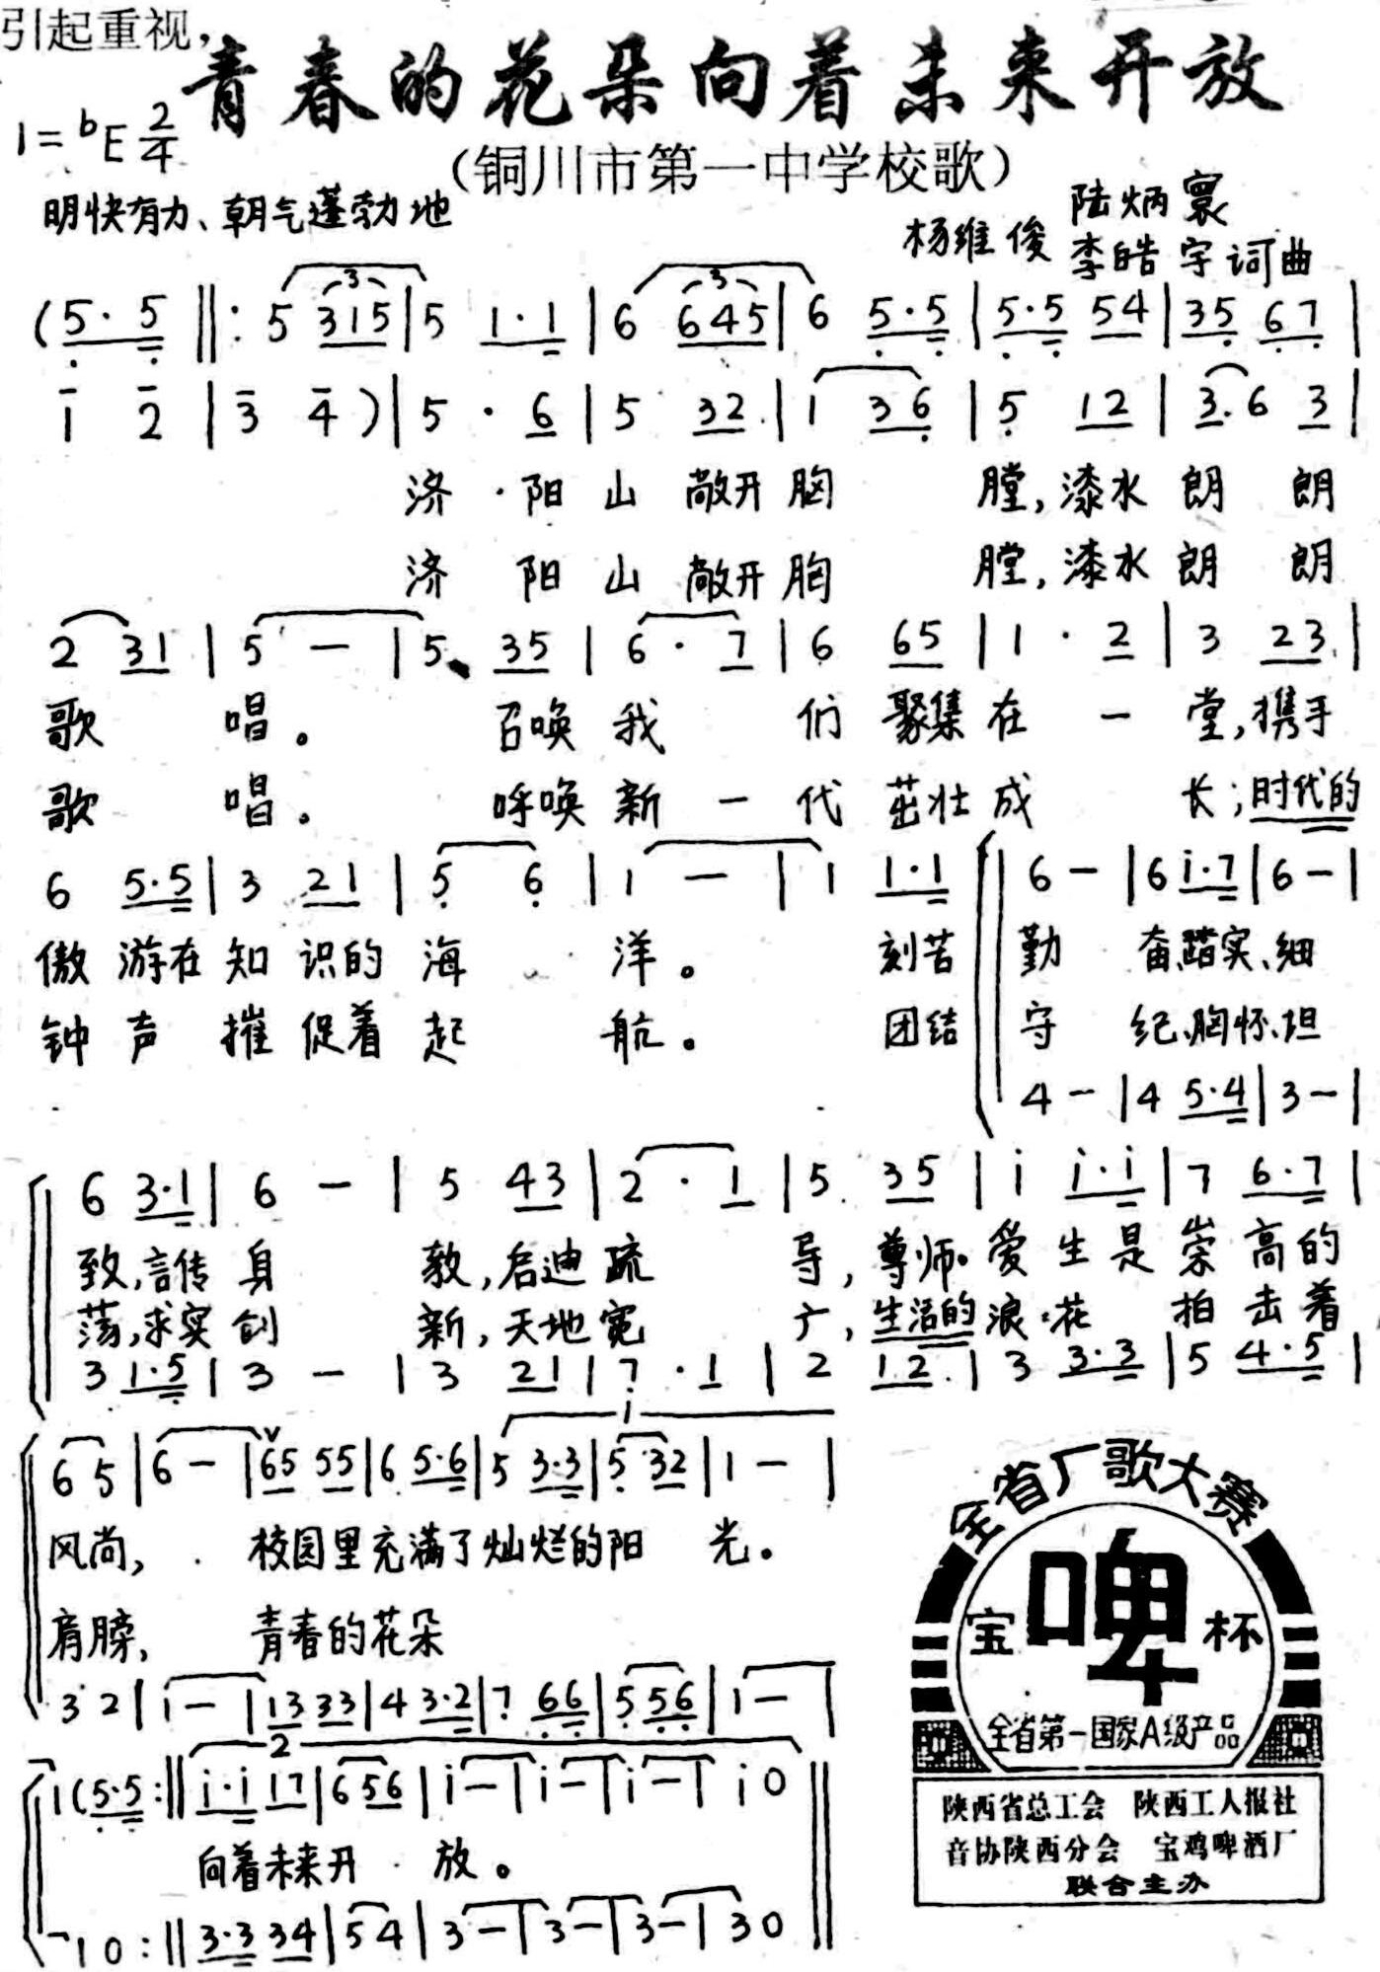 引起重视，
青春的花朵向着未来开放
（铜川市第一中学校歌）
1=♭E 2/4
明快有力、朝气蓬勃地
陆炳寰
杨维俊 李皓宇 词曲
(5·5 ‖: 5 315 | 5 1·1 | 6 645 | 6 5·5 | 5·5 54 | 35 67 |
1 2 | 3 4 ) | 5 · 6 | 5 32 | 1 36 | 5 12 | 3.6 3 |
济 · 阳 山 敞开 胸 膛，漆水 朗 朗
济 阳 山 敞开 胸 膛，漆水 朗 朗
2 31 | 5 — | 5. 35 | 6 · 7 | 6 65 | 1 · 2 | 3 23 |
歌 唱。 召唤 我 们 聚集 在 一 堂，携手
歌 唱。 呼唤 新 一 代 茁壮 成 长；时代的
6 5·5 | 3 21 | 5 6 | 1 — | 1 1·1 | 6 — | 6 i·7 | 6 — |
傲 游在 知 识的 海 洋。 刻苦 勤 奋、踏实、细
钟 声 摧 促着 起 航。 团结 守 纪、胸怀、坦
4 — | 4 5·4 | 3 — |
6 3·1 | 6 — | 5 43 | 2 · 1 | 5. 35 | i i·i | 7 6·7 |
致，言传 身 教，启迪 疏 导，尊师 爱 生 是 崇 高 的
荡，求实 创 新，天地 宽 广，生活的 浪 花 拍 击 着
3 1·5 | 3 — | 3 21 | 7 · 1 | 2 12 | 3 3·3 | 5 4·5 |
1
6 5 | 6 — | 65 55 | 6 5·6 | 5 3·3 | 5 32 | 1 — |
风尚， 校园里充满了灿烂的阳 光。
肩膀， 青春的花朵
3 2 | 1 — | 13 33 | 4 3·2 | 7 66 | 5 56 | 1 — |
2
1 (5·5 :‖ i·i 17 | 6 56 | i — | i — | i — | i 0 ‖
向着未来开 放。
1 0 :‖ 3·3 34 | 5 4 | 3 — | 3 — | 3 — | 3 0 ‖
全省厂歌大赛
宝啤杯
全省第一国家A级产品
陕西省总工会 陕西工人报社
音协陕西分会 宝鸡啤酒厂
联合主办